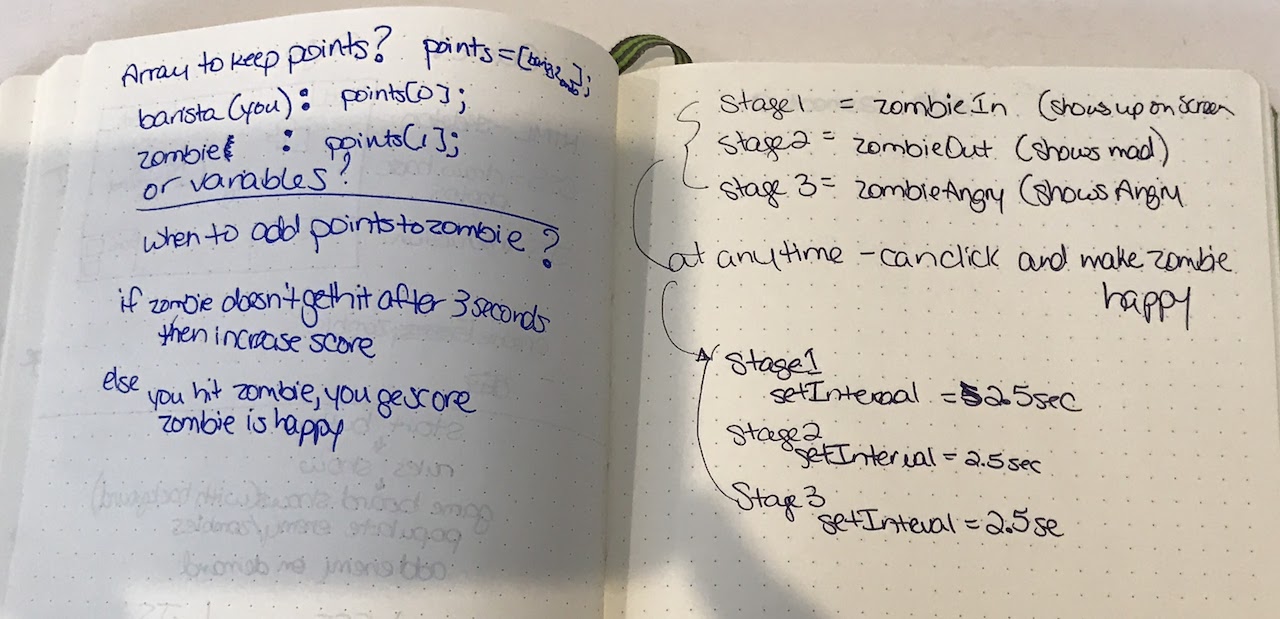 Array to keep points? points = [
barista (you) : points[0];
zombie : points[1];
or variables?
when to add points to zombie?
if zombie doesn't get hit after 3 seconds
then increase score
else you hit zombie, you ge score
zombie is happy
Stage1 = zombieIn (shows up on screen
Stage2 = zombieOut (shows mad)
Stage 3 = zombieAngry (shows Angry
at anytime - can click and make zombie
happy
Stage1
setInterval = 2.5sec
Stage2
setInterval = 2.5 sec
Stage 3
setInteval = 2.5 se